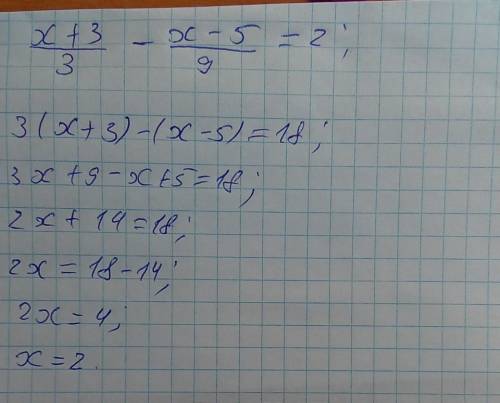 (x+3)/3 - (x-5)/9 = 2;
3(x+3)-(x-5)=18;
3x+9-x+5=18;
2x+14=18;
2x=18-14;
2x=4;
x=2.